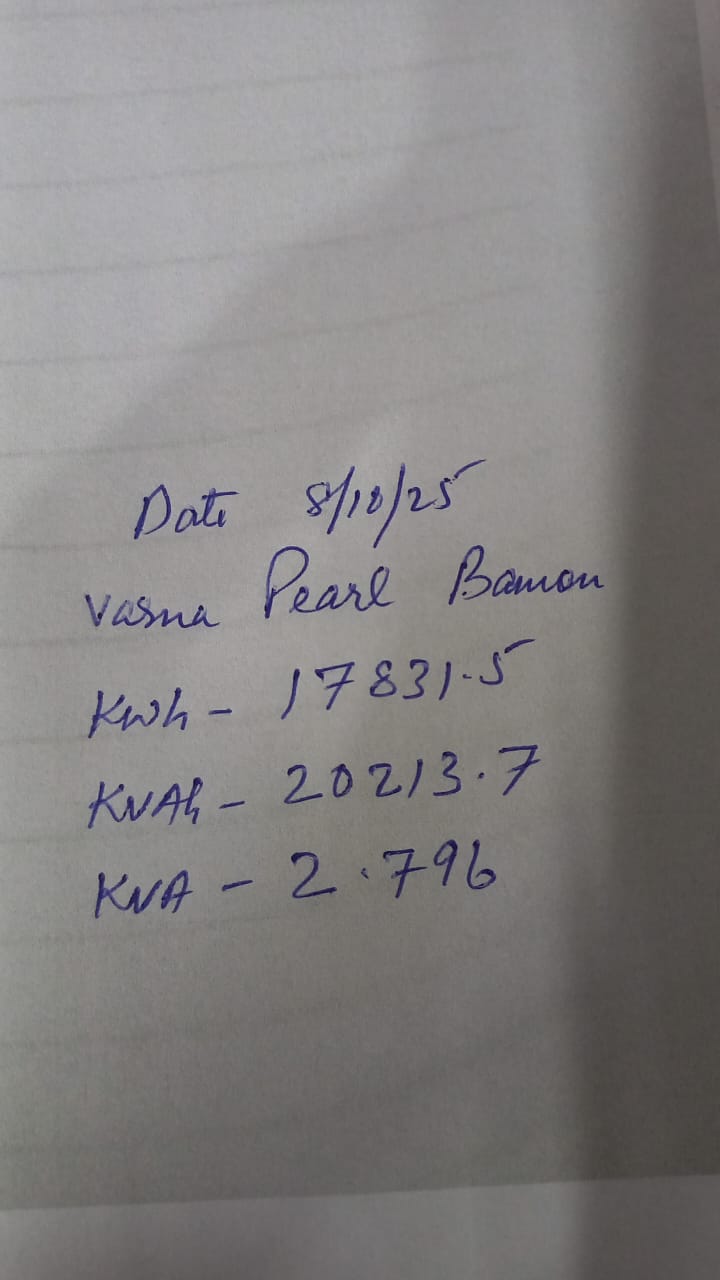 Date 8/10/25
Vasna Pearl Bamon
Kwh - 17831.5
KVAh - 20213.7
KVA - 2.796